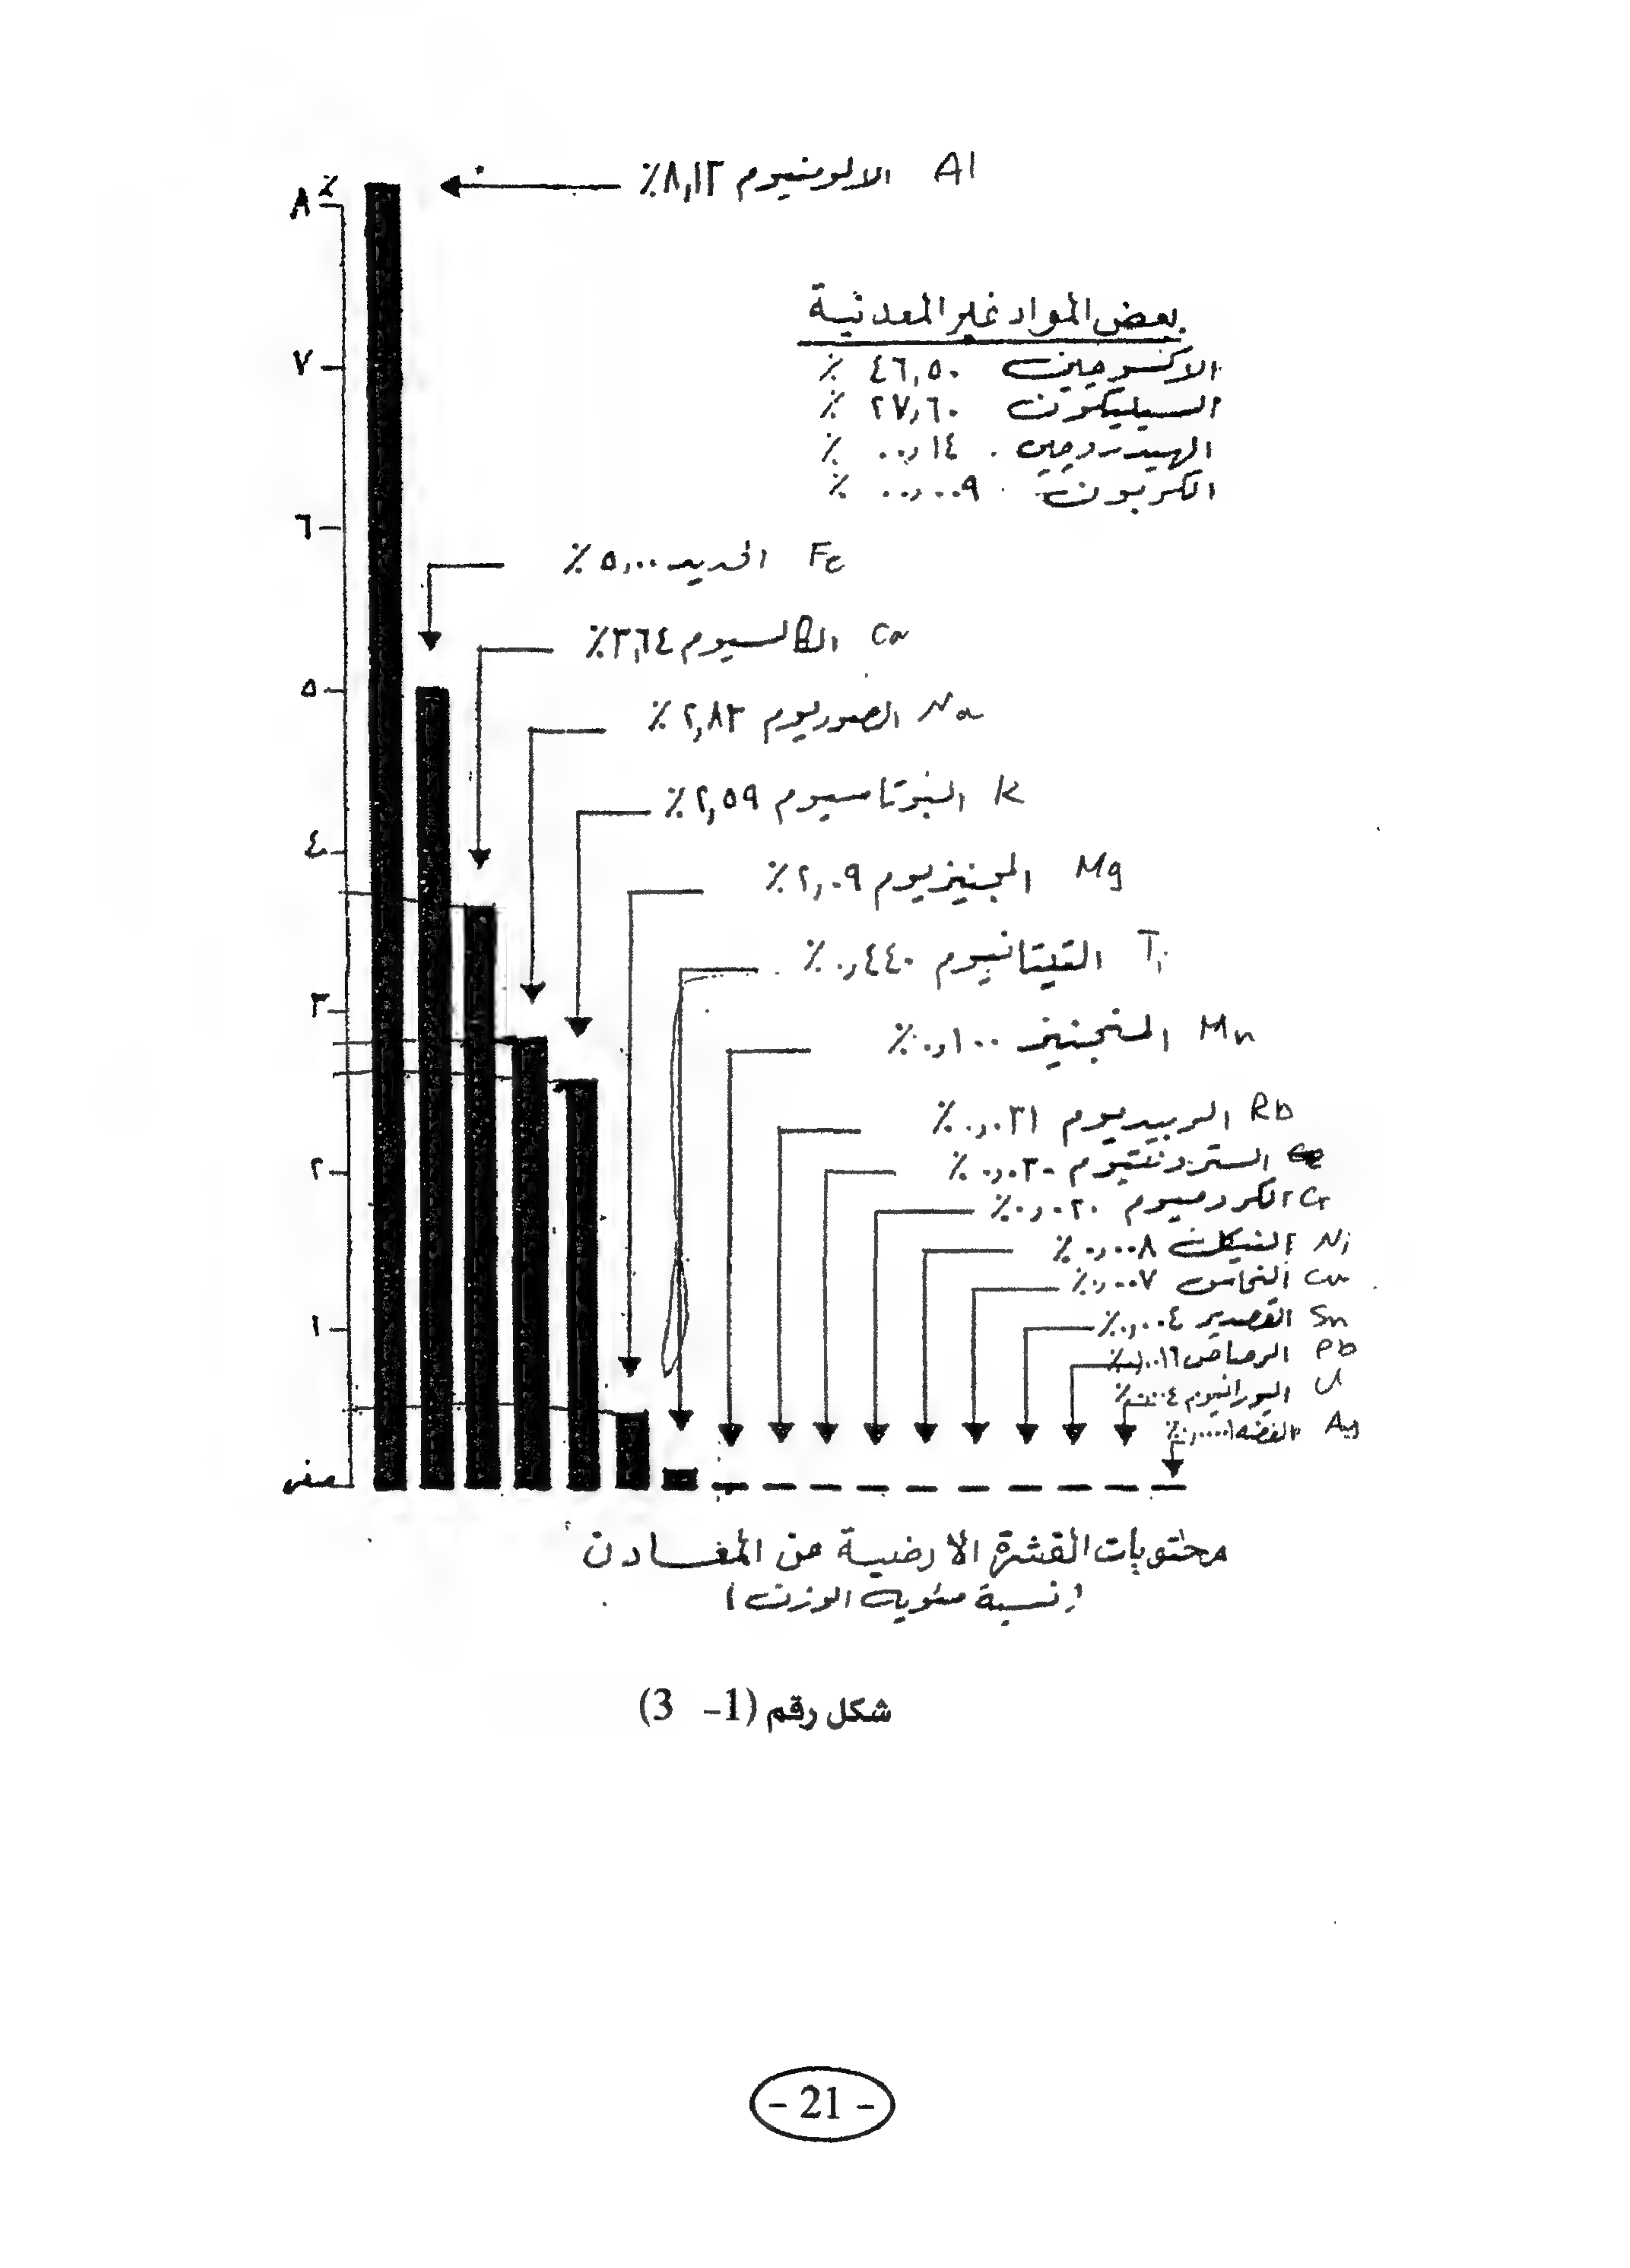 Al الالومنيوم ٨,١٣٪
٪
٨
بعض المواد غير المعدنية
الاكسوجين ٤٦,٥٠ ٪
السيليكون ٢٧,٦٠ ٪
الهيدروجين ٠٠,١٤ ٪
الكربون ٠٠,٠٠٩ ٪
٧
٦
Fe الحديد ٥,٠٠ ٪
Ca ٣,٦٤٪
٥
Na الصوديوم ٢,٨٣ ٪
K البوتاسيوم ٢,٥٩ ٪
٤
Mg المجنيزيوم ٢,٠٩ ٪
Ti التيتانيوم ٠,٤٤٠ ٪
٣
Mn المنجنيز ٠,١٠٠ ٪
Rb الربيديوم ٠,٠٣١ ٪
٢
السترونتيوم ٠,٠٣٠ ٪
Cr الكروميوم ٠,٠٢٠ ٪
Ni النيكل ٠,٠٠٨ ٪
Cu النحاس ٠,٠٠٧ ٪
١
Sn القصدير ٠,٠٠٤ ٪
Pb الرصاص
U اليورانيوم
Ag الفضه
صفر
محتويات القشرة الارضية من المعادن
(نسبة مئوية الوزن)
شكل رقم (1- 3)
- 21 -